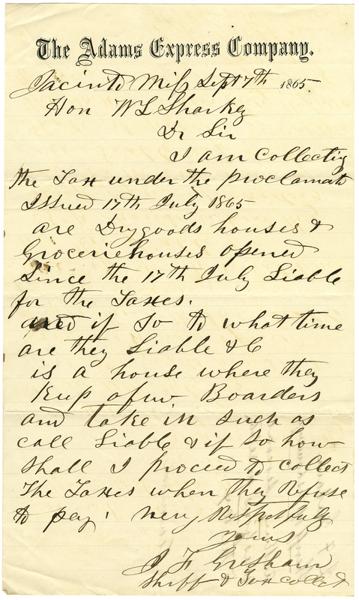 The Adams Express Company.
Jacinto Miss Sept 7th 1865.
Hon W L Sharkey
Dr Sir
I am collectig
the Tax under the proclamati
Issued 17th July 1865
are Drygoods houses &
Groceriehouses opened
Since the 17th July Liable
for the Taxes.
and if So to what time
are they Liable & C
is a house where they
Keep a few Boarders
and take in Such as
call Liable & if So how
Shall I proceed to collect
The Taxes when they Refuse
to pay. Very Respetfully
yours
J F Gresham
Shriff & Tax Collect